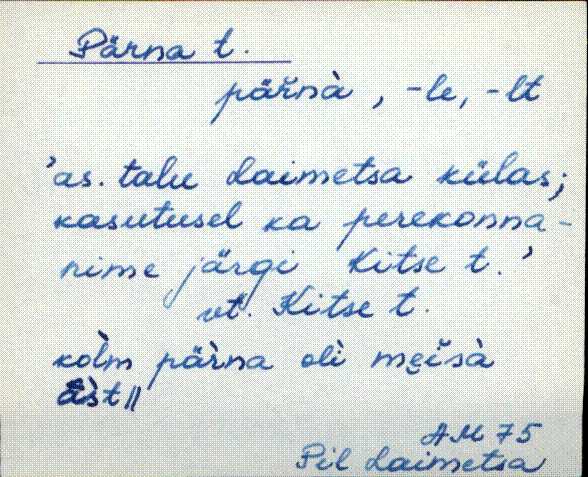 Pärna t.
pär̆nà, -le, -lt
'as. talu Laimetsa külas;
kasutusel ka perekonna-
nime järgi Kitse t.'
vt. Kitse t.
kòlm pär̀na olì mei̯šà
ās̀t ||
AM 75
Pil Laimetsa